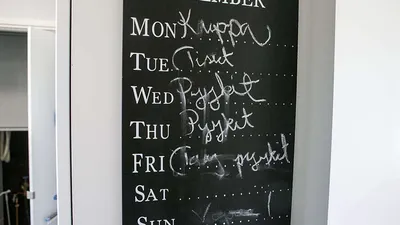 EMBER
MON Kauppa
TUE Tiskit
WED Pyykit
THU Pyykit
FRI pyykit
SAT
SUN